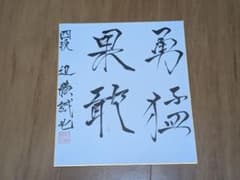 勇猛
果敢
四段 近藤誠也